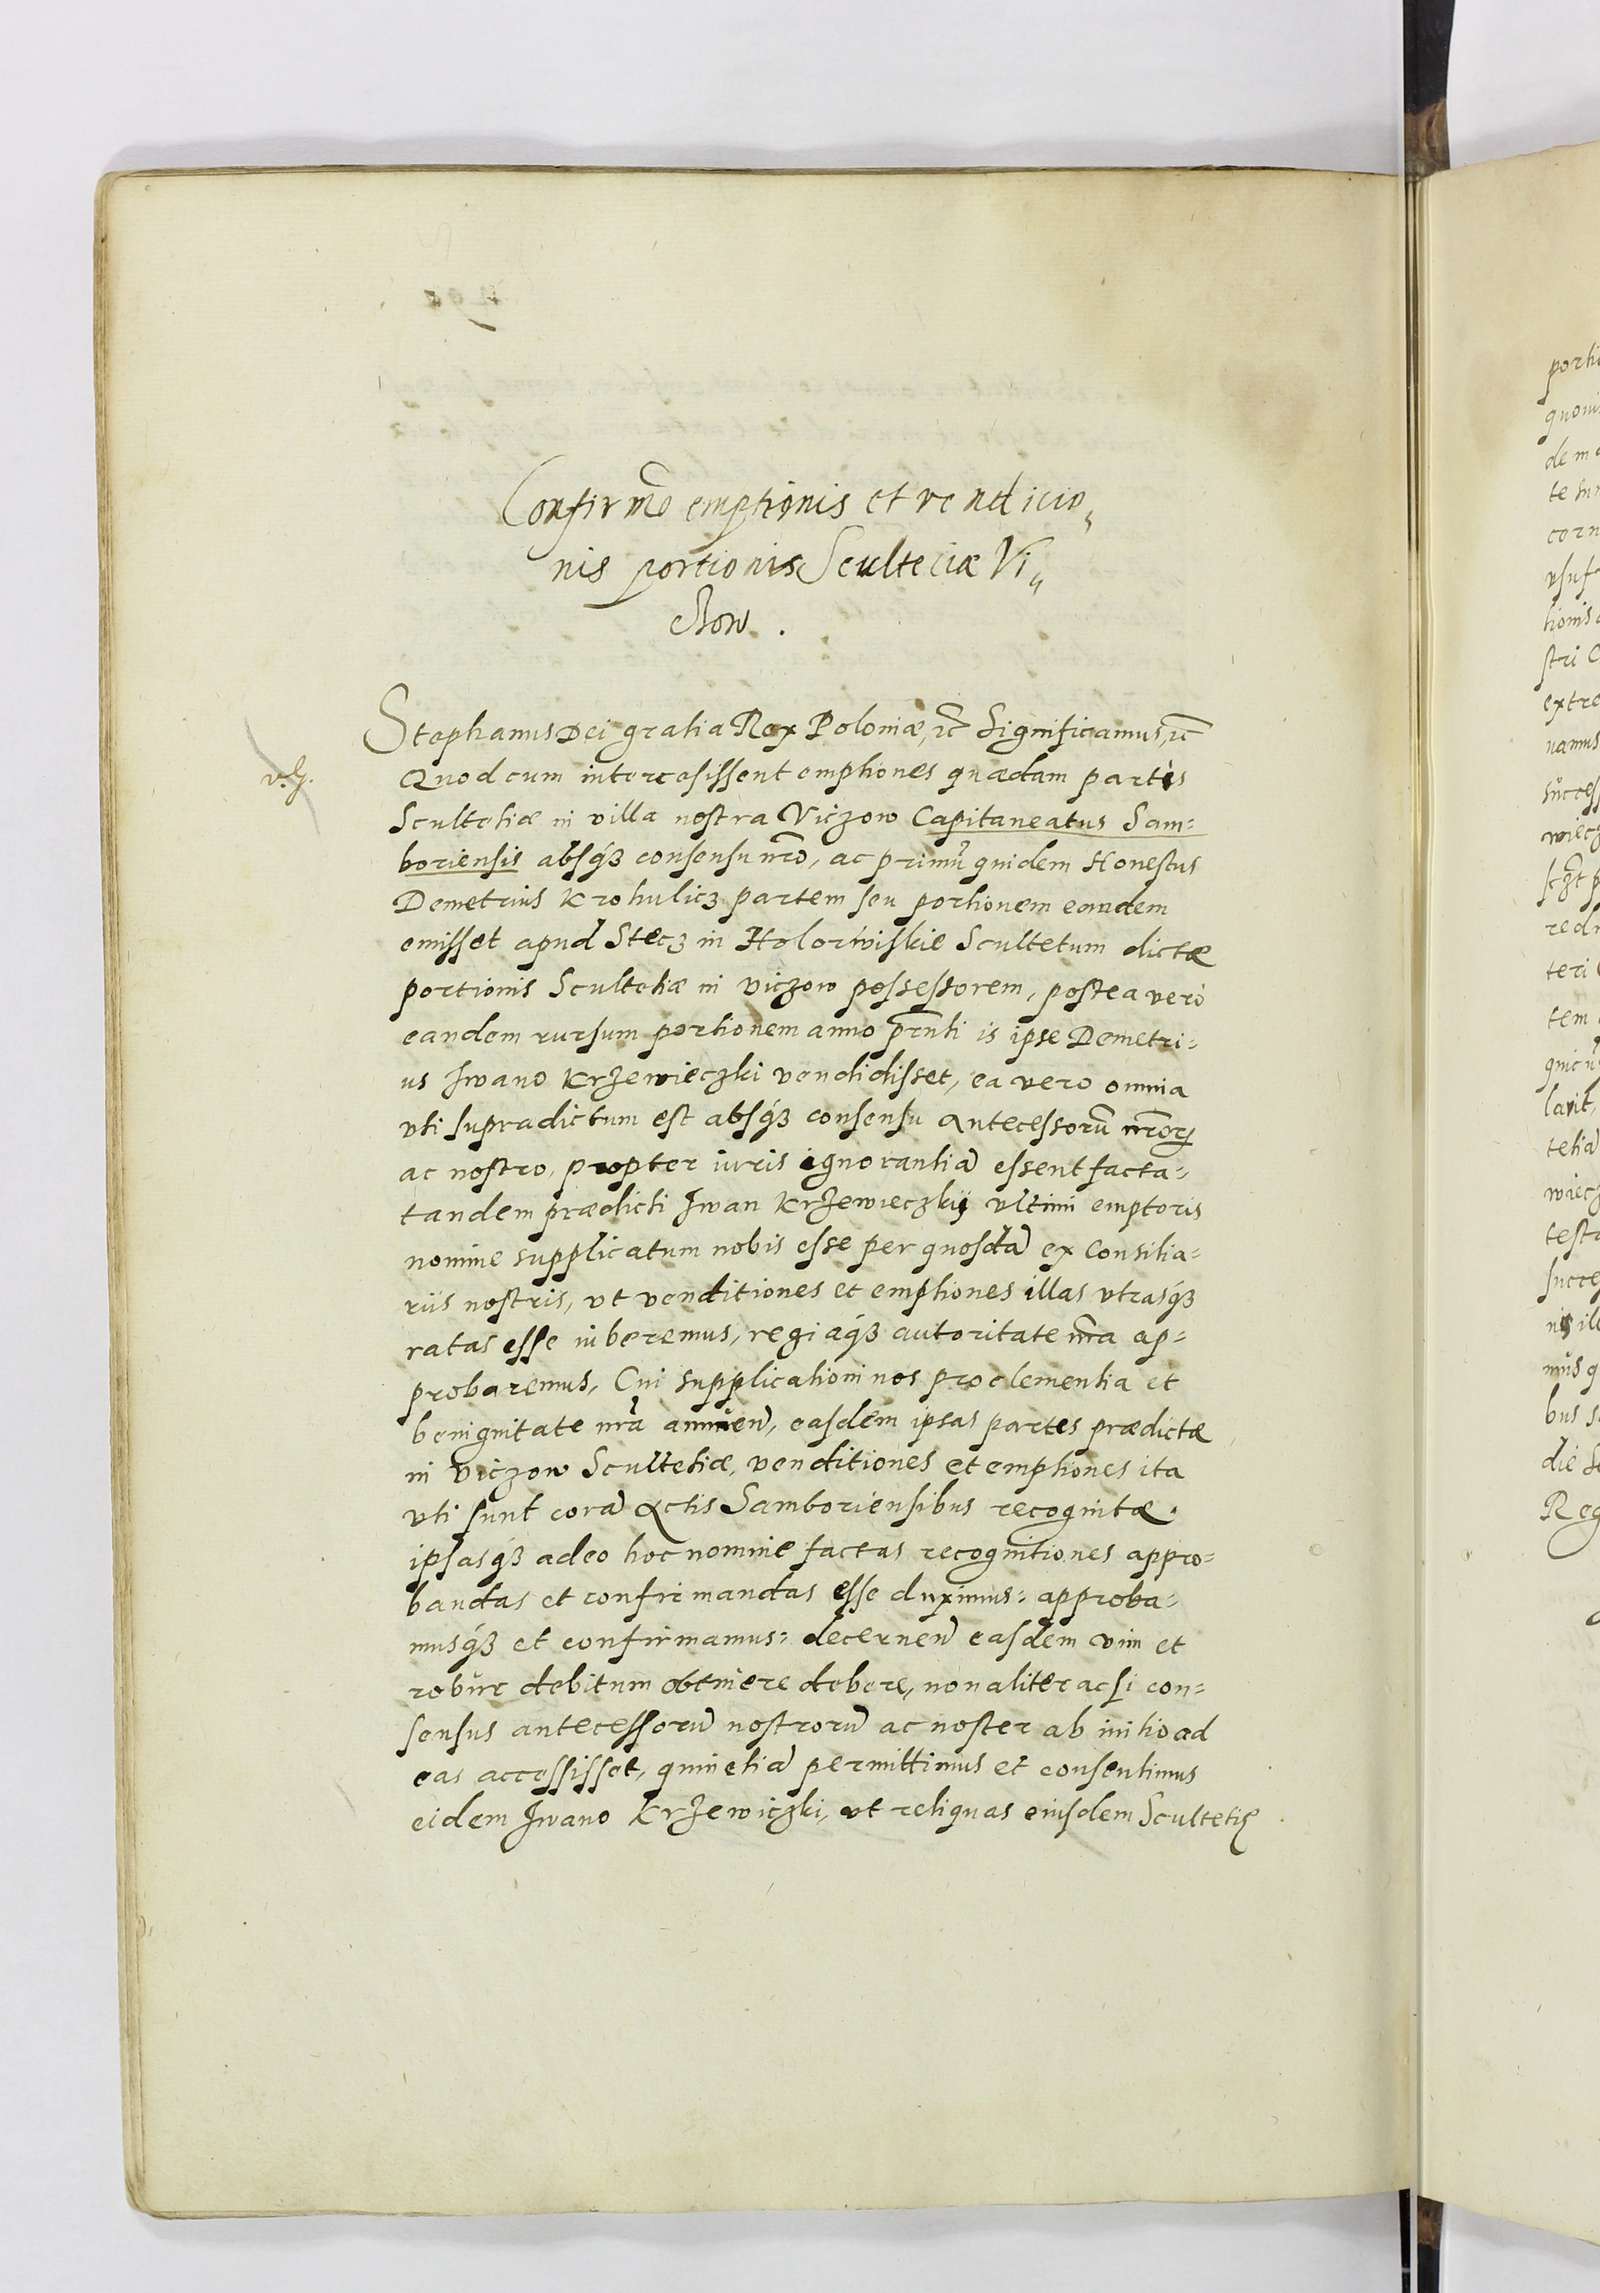 Confirmo emptionis et vendicio„
nis portionis Scultetiæ Vi„
czow.
Stephanus Dei gratia Rex Poloniæ, etc Significamus, etc
Quod cum intercesissent emptiones quædam partis
Scultetiæ in villa nostra Viczow Capitaneatus Sam=
boriensis absq3 consensu nro, ac primu quidem Honestus
Demetrius Krohulicz partem seu portionem eandem
emisset apud Stecz in Holowiskie Scultetum dictæ
portionis Scultetiæ in viczow possessorem, postea vero
eandem rursum portionem anno prnti is ipse Demetri=
us Iwano Krzewieczki vendidisset, ea vero omnia
vti supradictum est absq3 consensu Antecessoru nror
ac nostro, propter iuris ignorantia essent facta=
tandem prædicti Iwan Krzewieczkij vltimi emptoris
nomine supplicatum nobis esse per quosda ex Consilia=
riis nostris, vt venditiones et emptiones illas vtrasq3
ratas esse iuberemus, regiaq3 autoritate nra ap=
probaremus, Cui supplicationi nos pro clementia et
benignitate nra annuen, easdem ipsas partes prædictæ
in viczow Scultetiæ, venditiones et emptiones ita
vti sunt cora Actis Samboriensibus recognitæ.
ipsasq3 adeo hoc nomine factas recognitiones appro=
bandas et confirmandas esse duximus= approba=
musq3 et confirmamus= decernen easdem vim et
robur debitum obtinere debere, non aliter acsi con=
sensus antecessoru nostroru ac noster ab initio ad
eas accessisset, quin etia permittimus et consentimus
eidem Iwano Krzewiczki, vt reliquas eiusdem Scultetię